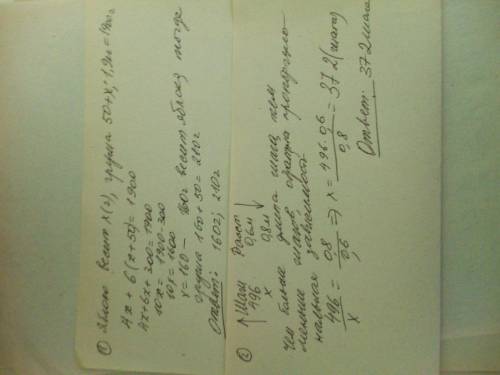 ① Яблоко весит x(г), груша 50+x, 1,9кг=1900г
4x + 6(x+50)=1900
4x+6x+300=1900
10x = 1900-300
10x = 1600
x = 160 — 160г весит яблоко, тогда
груша 160+50=210г
Ответ: 160г; 210г
② ↑ Шаги Расст ↓
496 0,6м
x 0,8м
Чем больше длина шага, тем
меньше шагов, обратно пропорцио-
нальная зависимость
496/x = 0,8/0,6 => x = 496·0,6/0,8 = 372(шага)
Ответ: 372 шага